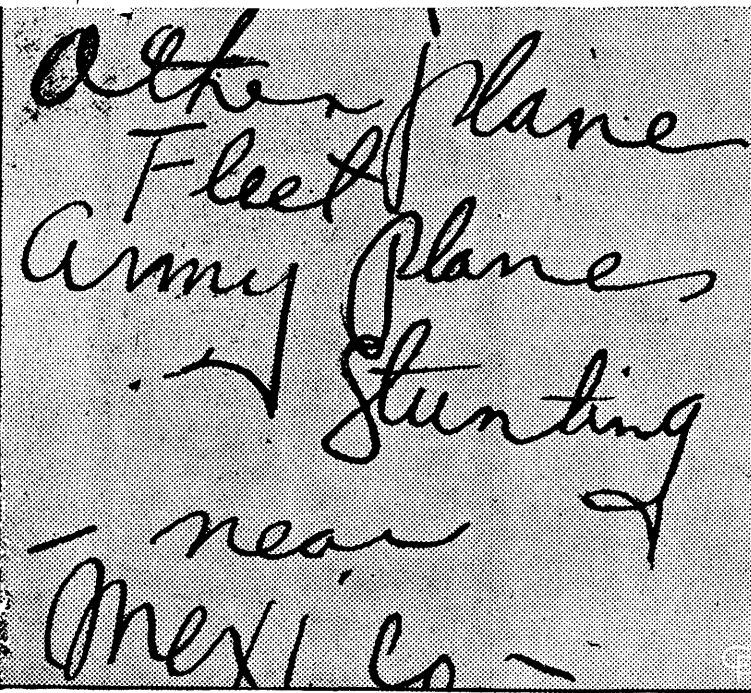 Other plane
Fleet
Army planes
Stunting
- near
Mexico -